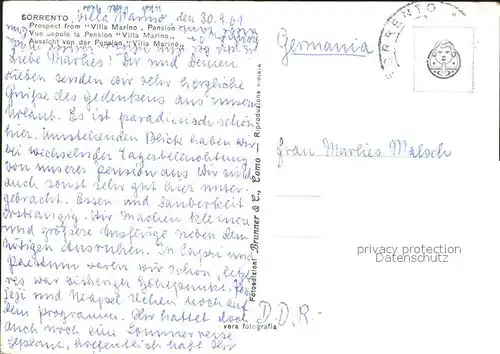 SORRENTO
Villa Marino, den 30.4.61
Prospect from "Villa Marino" Pension
Vue depuis la Pension "Villa Marino"
Aussicht von der Pension "Villa Marino"
Liebe Marlies! Dir und Deinen
Lieben senden wir sehr herzliche
Grüße des Gedenkens aus unserm
Urlaub. Es ist paradiesisch schön
hier. Umstehenden Blick haben wir
bei wechselnder Tagesbeleuchtung
von unserer Pension aus. Wir sind
auch sonst sehr gut hier unter-
gebracht. Essen und Sauberkeit
erstrangig. Wir machen kleinere
und größere Ausflüge neben dem
nötigen Ausruhen. In Capri und
Paestum waren wir schon, letzte-
res war bisheriger Höhepunkt. Pom-
peji und Neapel stehen noch auf
dem Programm. Ihr hattet doch
auch noch eine Sommerreise
geplant, hoffentlich habt Ihr
Fotoedizioni Brunner & C., Como
Riproduzione vietata
vera fotografia
SORRENTO
Germania
Frau Marlies Malsch
D.D.R.
privacy protection
Datenschutz